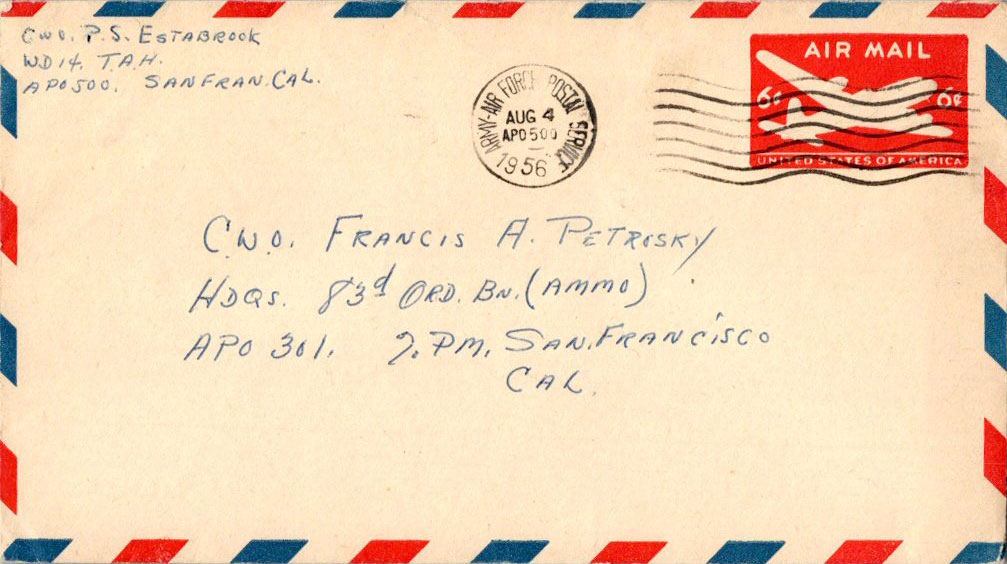 CWO. P. S. ESTABROOK
WD 14. T.A.H.
APO 500. SAN FRAN. CAL.
ARMY-AIR FORCE POSTAL SERVICE
AUG 4
APO 500
1956
AIR MAIL
6¢ 6¢
UNITED STATES OF AMERICA
C.W.O. FRANCIS A. PETROSKY
HDQS. 83d ORD. BN. (AMMO)
APO 301. %. PM. SAN. FRANCISCO
CAL.